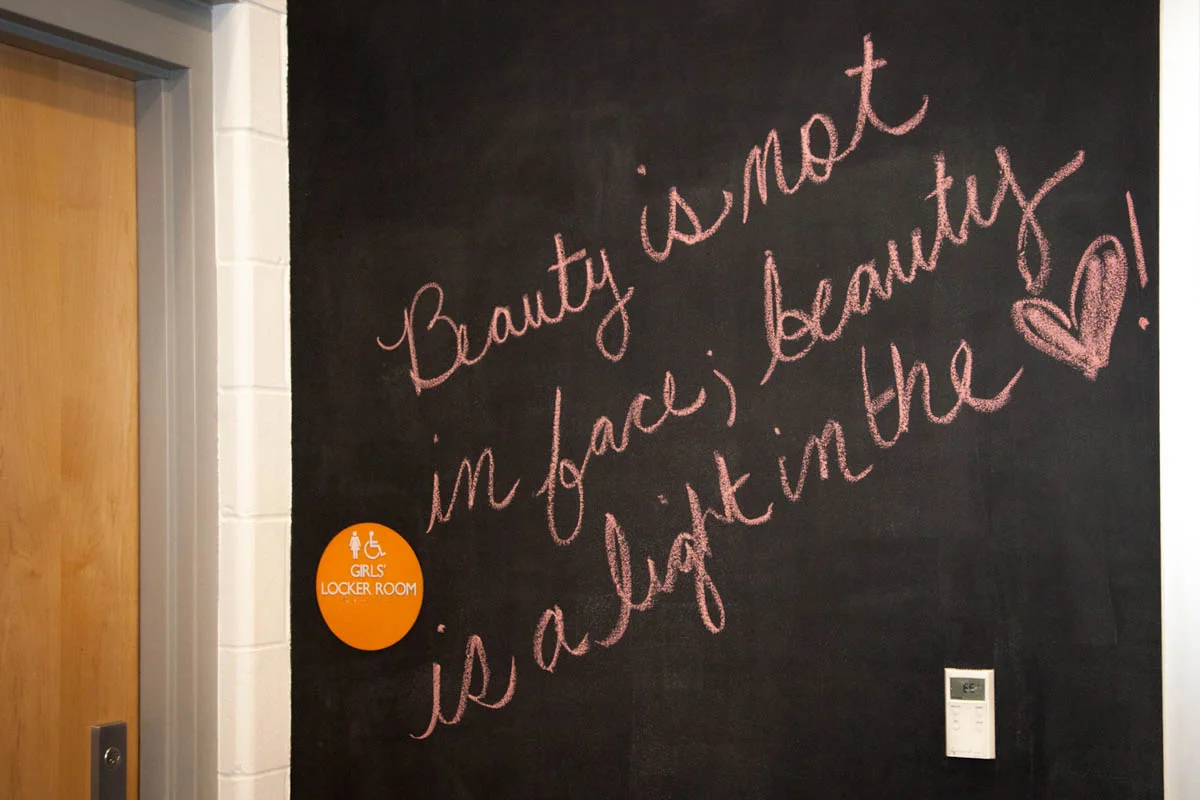 Beauty is not
in face; beauty
is a light in the ♥!
GIRLS'
LOCKER ROOM